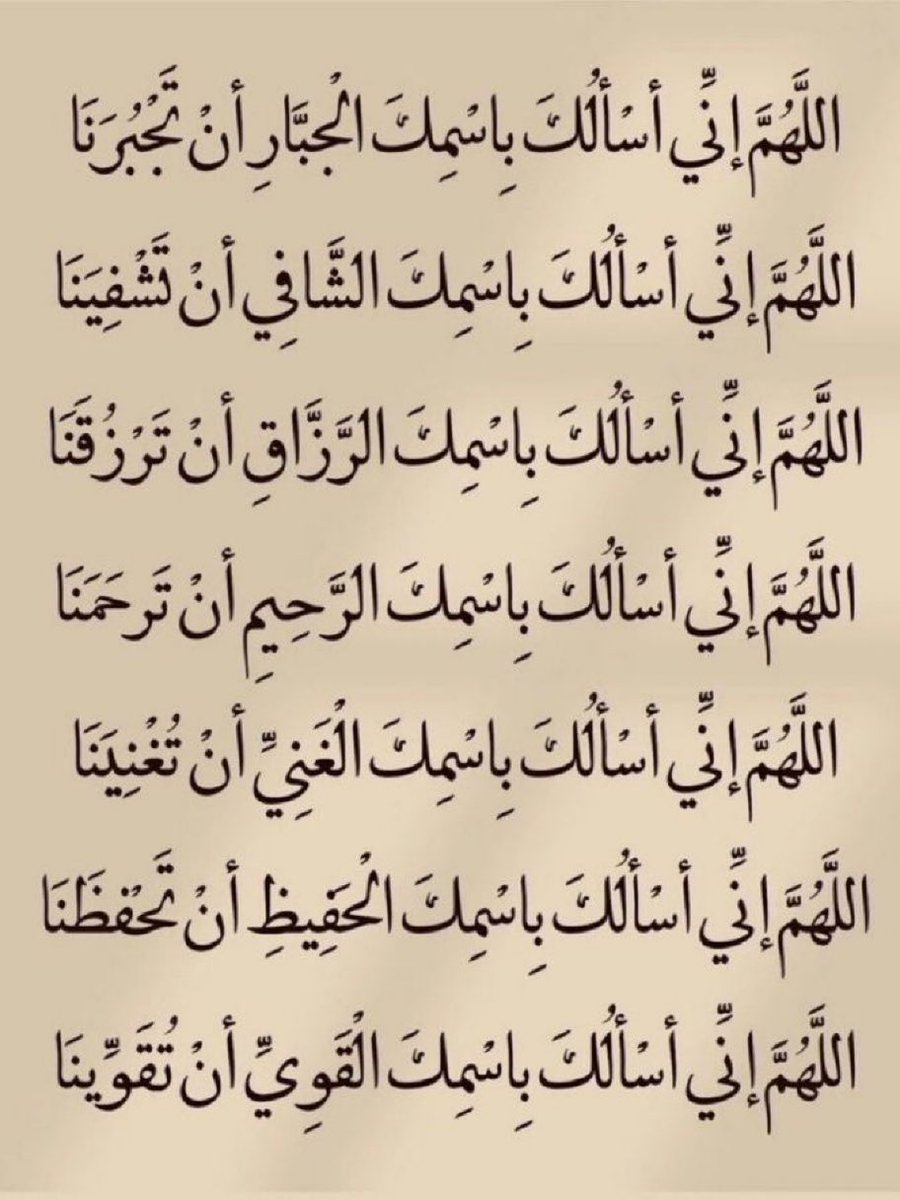 اللَّهُمَّ إنِّي أسْألُكَ بِاسْمِكَ الْجبَّارِ أنْ تَجْبُرَنَا
اللَّهُمَّ إنِّي أسْألُكَ بِاسْمِكَ الشَّافِي أنْ تَشْفِيَنَا
اللَّهُمَّ إنِّي أسْألُكَ بِاسْمِكَ الرَّزَّاقِ أنْ تَرْزُقَنَا
اللَّهُمَّ إنِّي أسْألُكَ بِاسْمِكَ الرَّحِيمِ أنْ تَرحَمَنَا
اللَّهُمَّ إنِّي أسْألُكَ بِاسْمِكَ الْغَنِيِّ أنْ تُغْنِيَنَا
اللَّهُمَّ إنِّي أسْألُكَ بِاسْمِكَ الْحَفِيظِ أنْ تَحْفظَنَا
اللَّهُمَّ إنِّي أسْألُكَ بِاسْمِكَ الْقَوِيِّ أنْ تُقَوِّينَا